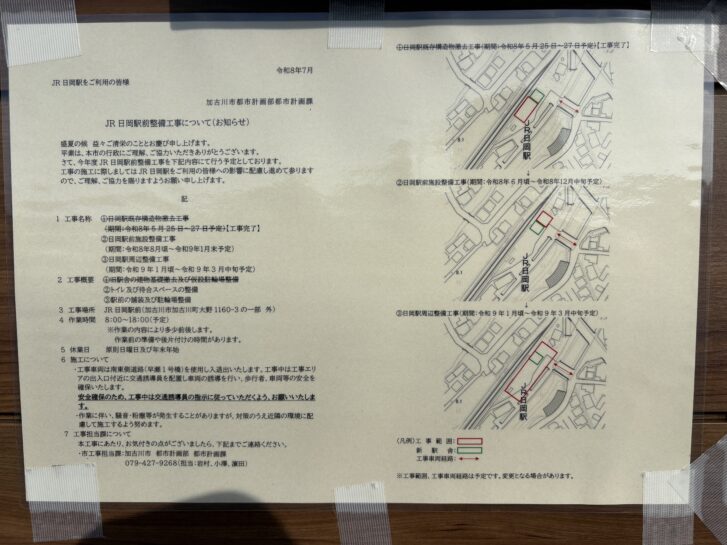 令和8年7月
JR日岡駅をご利用の皆様
加古川市都市計画部都市計画課
JR日岡駅前整備工事について(お知らせ)
盛夏の候 益々ご清栄のこととお慶び申し上げます。
平素は、本市の行政にご理解、ご協力いただきありがとうございます。
さて、今年度JR日岡駅前整備工事を下記内容にて行う予定としております。
工事の施工に際しましてはJR日岡駅をご利用の皆様への影響に配慮し進めて参ります
ので、ご理解、ご協力を賜りますようお願い申し上げます。
記
1 工事名称 ①日岡駅既存構造物撤去工事
(期間:令和8年5月25日~27日予定)【工事完了】
②日岡駅前施設整備工事
(期間:令和8年8月頃~令和9年1月末予定)
③日岡駅周辺整備工事
(期間:令和9年1月頃~令和9年3月中旬予定)
2 工事概要 ①旧駅舎の建物基礎撤去及び仮設駐輪場整備
②トイレ及び待合スペースの整備
③駅前の舗装及び駐輪場整備
3 工事場所 JR日岡駅前(加古川市加古川町大野1160-3の一部 外)
4 作業時間 8:00~18:00(予定)
※作業の内容により多少前後します。
作業前の準備や後片付けの時間があります。
5 休業日 原則日曜日及び年末年始
6 施工について
・工事車両は南東側道路(早瀬1号橋)を使用し入退出いたします。工事中は工事エリ
アの出入口付近に交通誘導員を配置し車両の誘導を行い、歩行者、車両等の安全を
確保いたします。
安全確保のため、工事中は交通誘導員の指示に従っていただくよう、お願いいたしま
す。
・作業に伴い、騒音・粉塵等が発生することがありますが、対策のうえ近隣の環境に配
慮して施工するよう努めます。
7 工事担当課について
本工事にあたり、お気付きの点がございましたら、下記までご連絡ください。
・市工事担当課:加古川市 都市計画部 都市計画課
079-427-9268(担当:岩村、小澤、濵田)
①日岡駅既存構造物撤去工事(期間:令和8年5月25日~27日予定)【工事完了】
JR日岡駅
②日岡駅前施設整備工事(期間:令和8年6月頃~令和8年12月中旬予定)
JR日岡駅
③日岡駅周辺整備工事(期間:令和9年1月頃~令和9年3月中旬予定)
JR日岡駅
(凡例)工事範囲:
新駅舎:
工事車両経路:
※工事範囲、工事車両経路は予定です。変更となる場合があります。